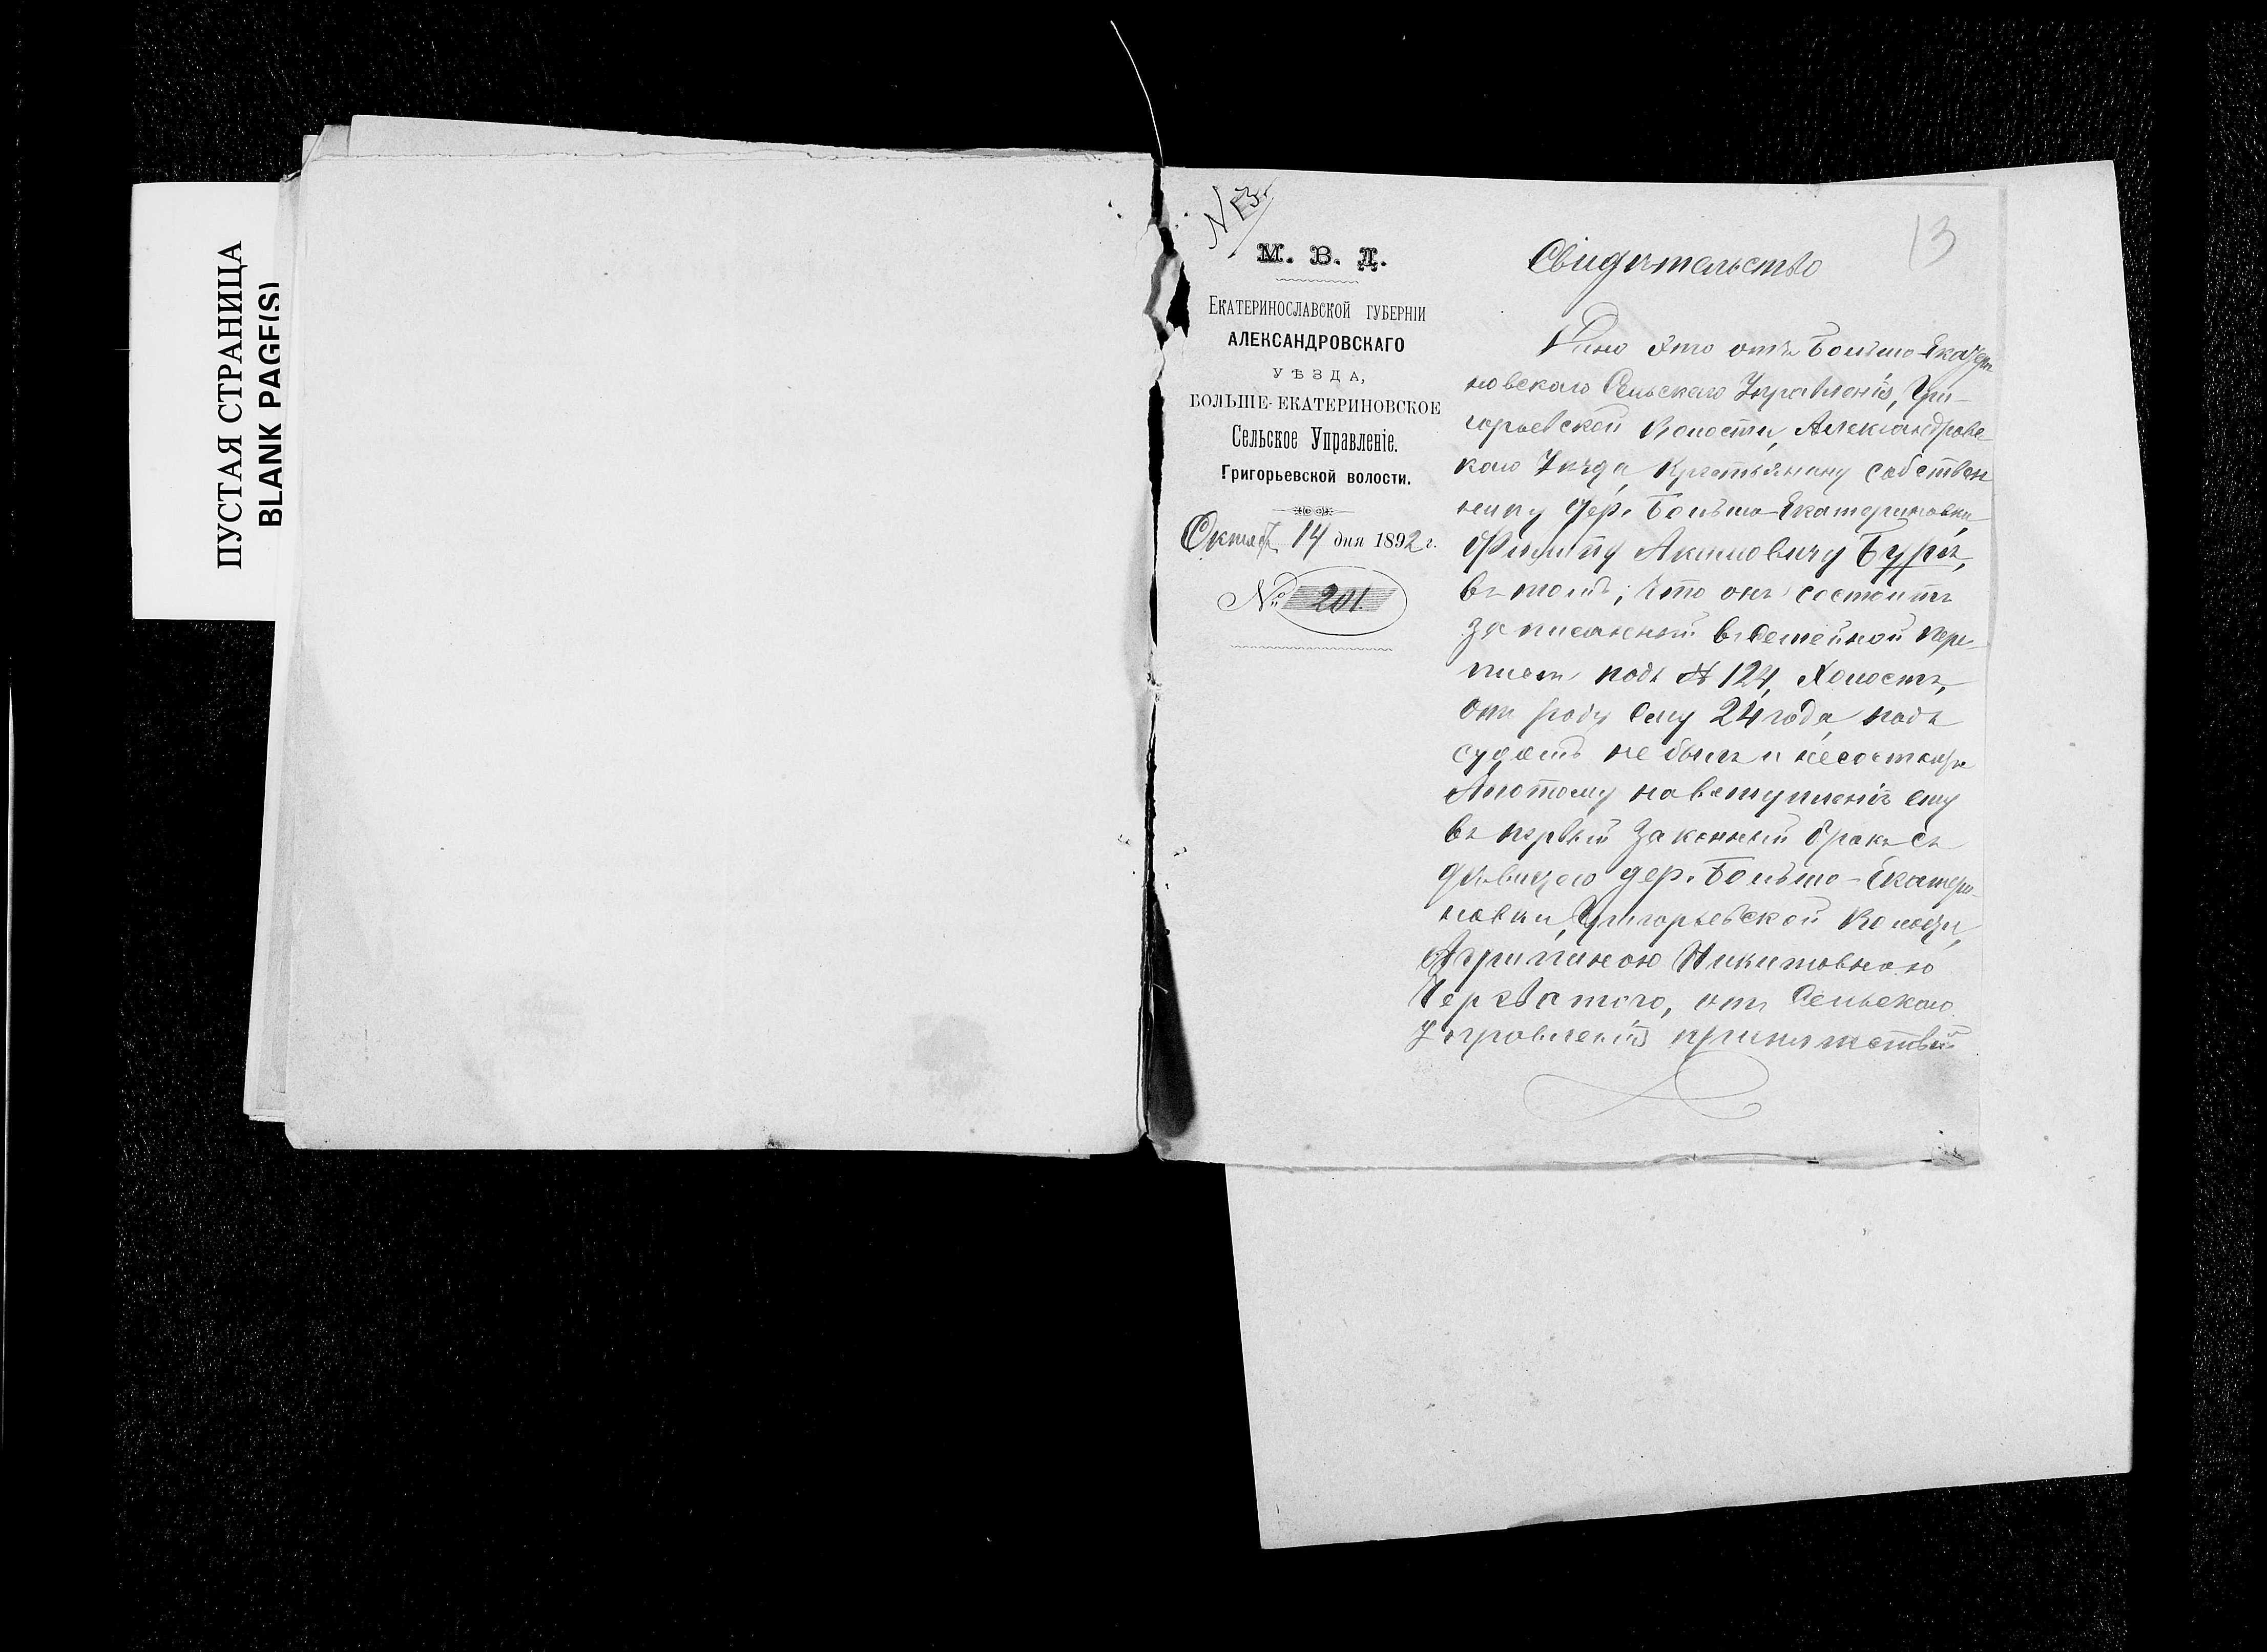 ПУСТАЯ СТРАНИЦА
BLANK PAGE(S)
№ 13
13
М. В. Д.
Екатеринославской губерніи
АЛЕКСАНДРОВСКАГО
УѢЗДА,
БОЛЬШЕ-ЕКАТЕРИНОВСКОЕ
Сельское Управленіе.
Григорьевской волости.
14 дня 1892 г.
№ 201.
Свидѣтельство
Дано это отъ Больше-Екатери
новскаго Сельскаго Управленія, Гри-
горьевской Волости, Александровс
каго Уѣзда, Крестьянину собствен
нику дер. Больше-Екатериновки,
Филипу Акимовичу Бурѣ,
въ томъ, что онъ состоитъ
записанный въ Семейной пере-
писи подъ № 124, Холостъ,
отъ роду ему 24 года, подъ
судомъ не былъ и несостоитъ
Апотому навступленіе ему
въ первый Законный бракъ съ
дѣвицею дер. Больше-Екатери-
новки, Григорьевской Волости,
Агрипиною Никитовною
отъ Сельскаго
Управленія